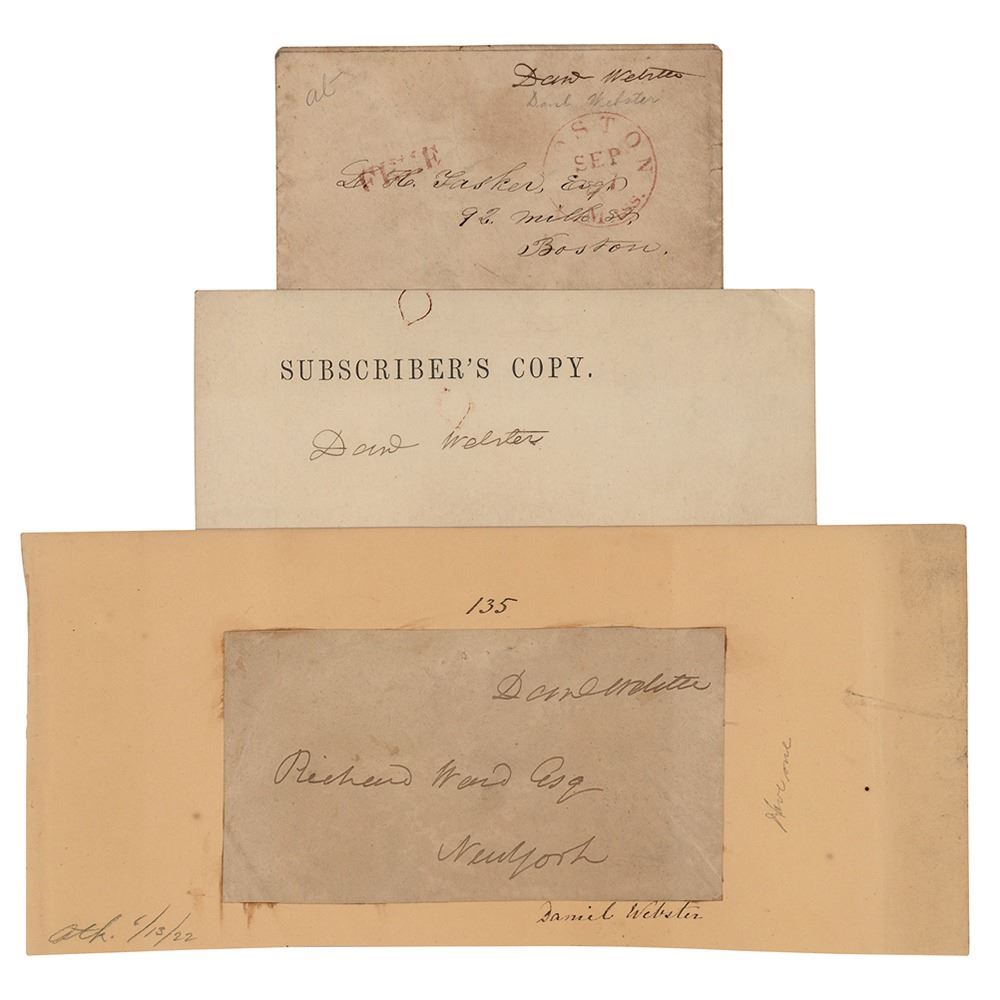 al
Danl Webster
Danl Webster
BOSTON
SEP
Mass.
FREE
D. H. Tasker, Esqr
92 Milk St,
Boston.
SUBSCRIBER'S COPY.
Danl Webster
135
Danl Webster
Richard Ward Esq
New York
Daniel Webster
6/13/22